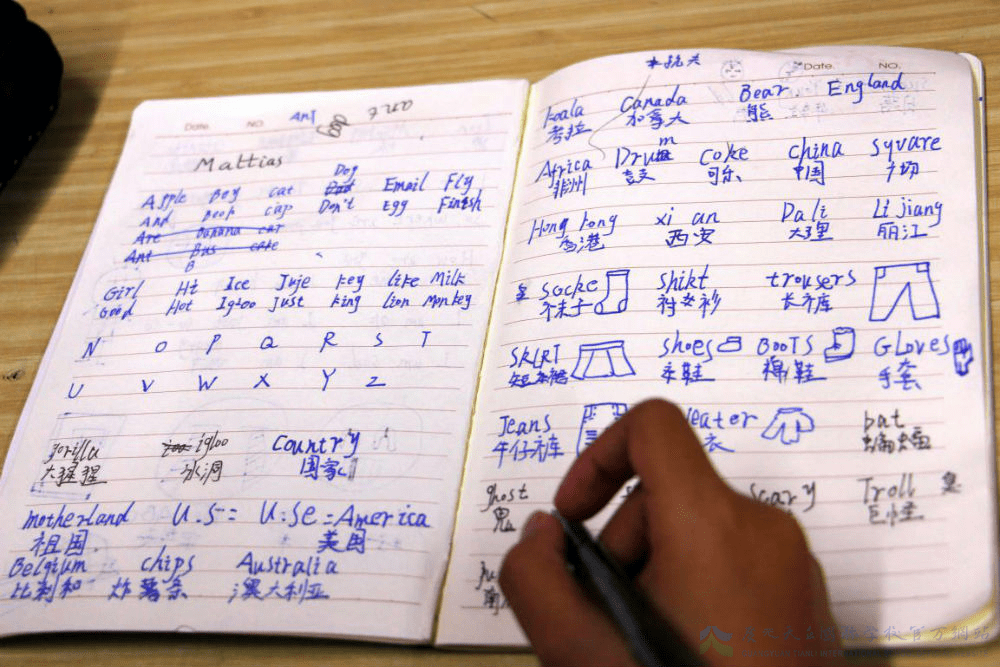 Date. NO. ANT
dog ant
Mattias
Apple Boy cat Dog Email Fly
And Book cap Don't Egg Finish
Are banana car
Ant Bus cake
B
Girl Hi Ice Juje key like Milk
Good Hot Igloo Just king lion monkey
N O P Q R S T
U V W X Y Z
gorilla igloo country
大猩猩 冰洞 国家
motherland U.S = U.Se = America
祖国 美国
Belgium chips Australia
比利和 炸薯条 澳大利亚
Date. NO.
koala Canada Bear England
考拉 加拿大 熊
Africa Drum coke china syvare
非洲 鼓 可乐 中国
Hong kong xi an Dali Li jiang
香港 西安 大理 丽江
socke shikt trousers
袜子 衬衫 长裤
SKIRT shoes BOOTS GLOVES
短裙 鞋 棉鞋 手套
Jeans eater bat
牛仔裤 衣 蝙蝠
ghost scary Troll
鬼 巨怪